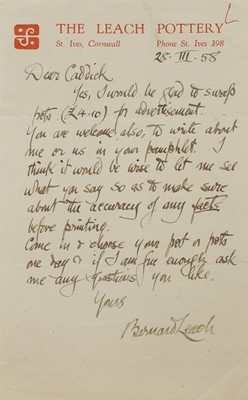 THE LEACH POTTERY
St. Ives, Cornwall Phone St. Ives 398
L
25-III-58
Dear Caddick
Yes, I would be glad to swap
pots (£4-10) for advertisement.
You are welcome also, to write about
me or us in your pamphlet. I
think it would be wise to let me see
what you say so as to make sure
about the accuracy of any facts
before printing.
Come in & choose your pot or pots
one day & if I am free enough ask
me any questions you like.
Yours
Bernard Leach